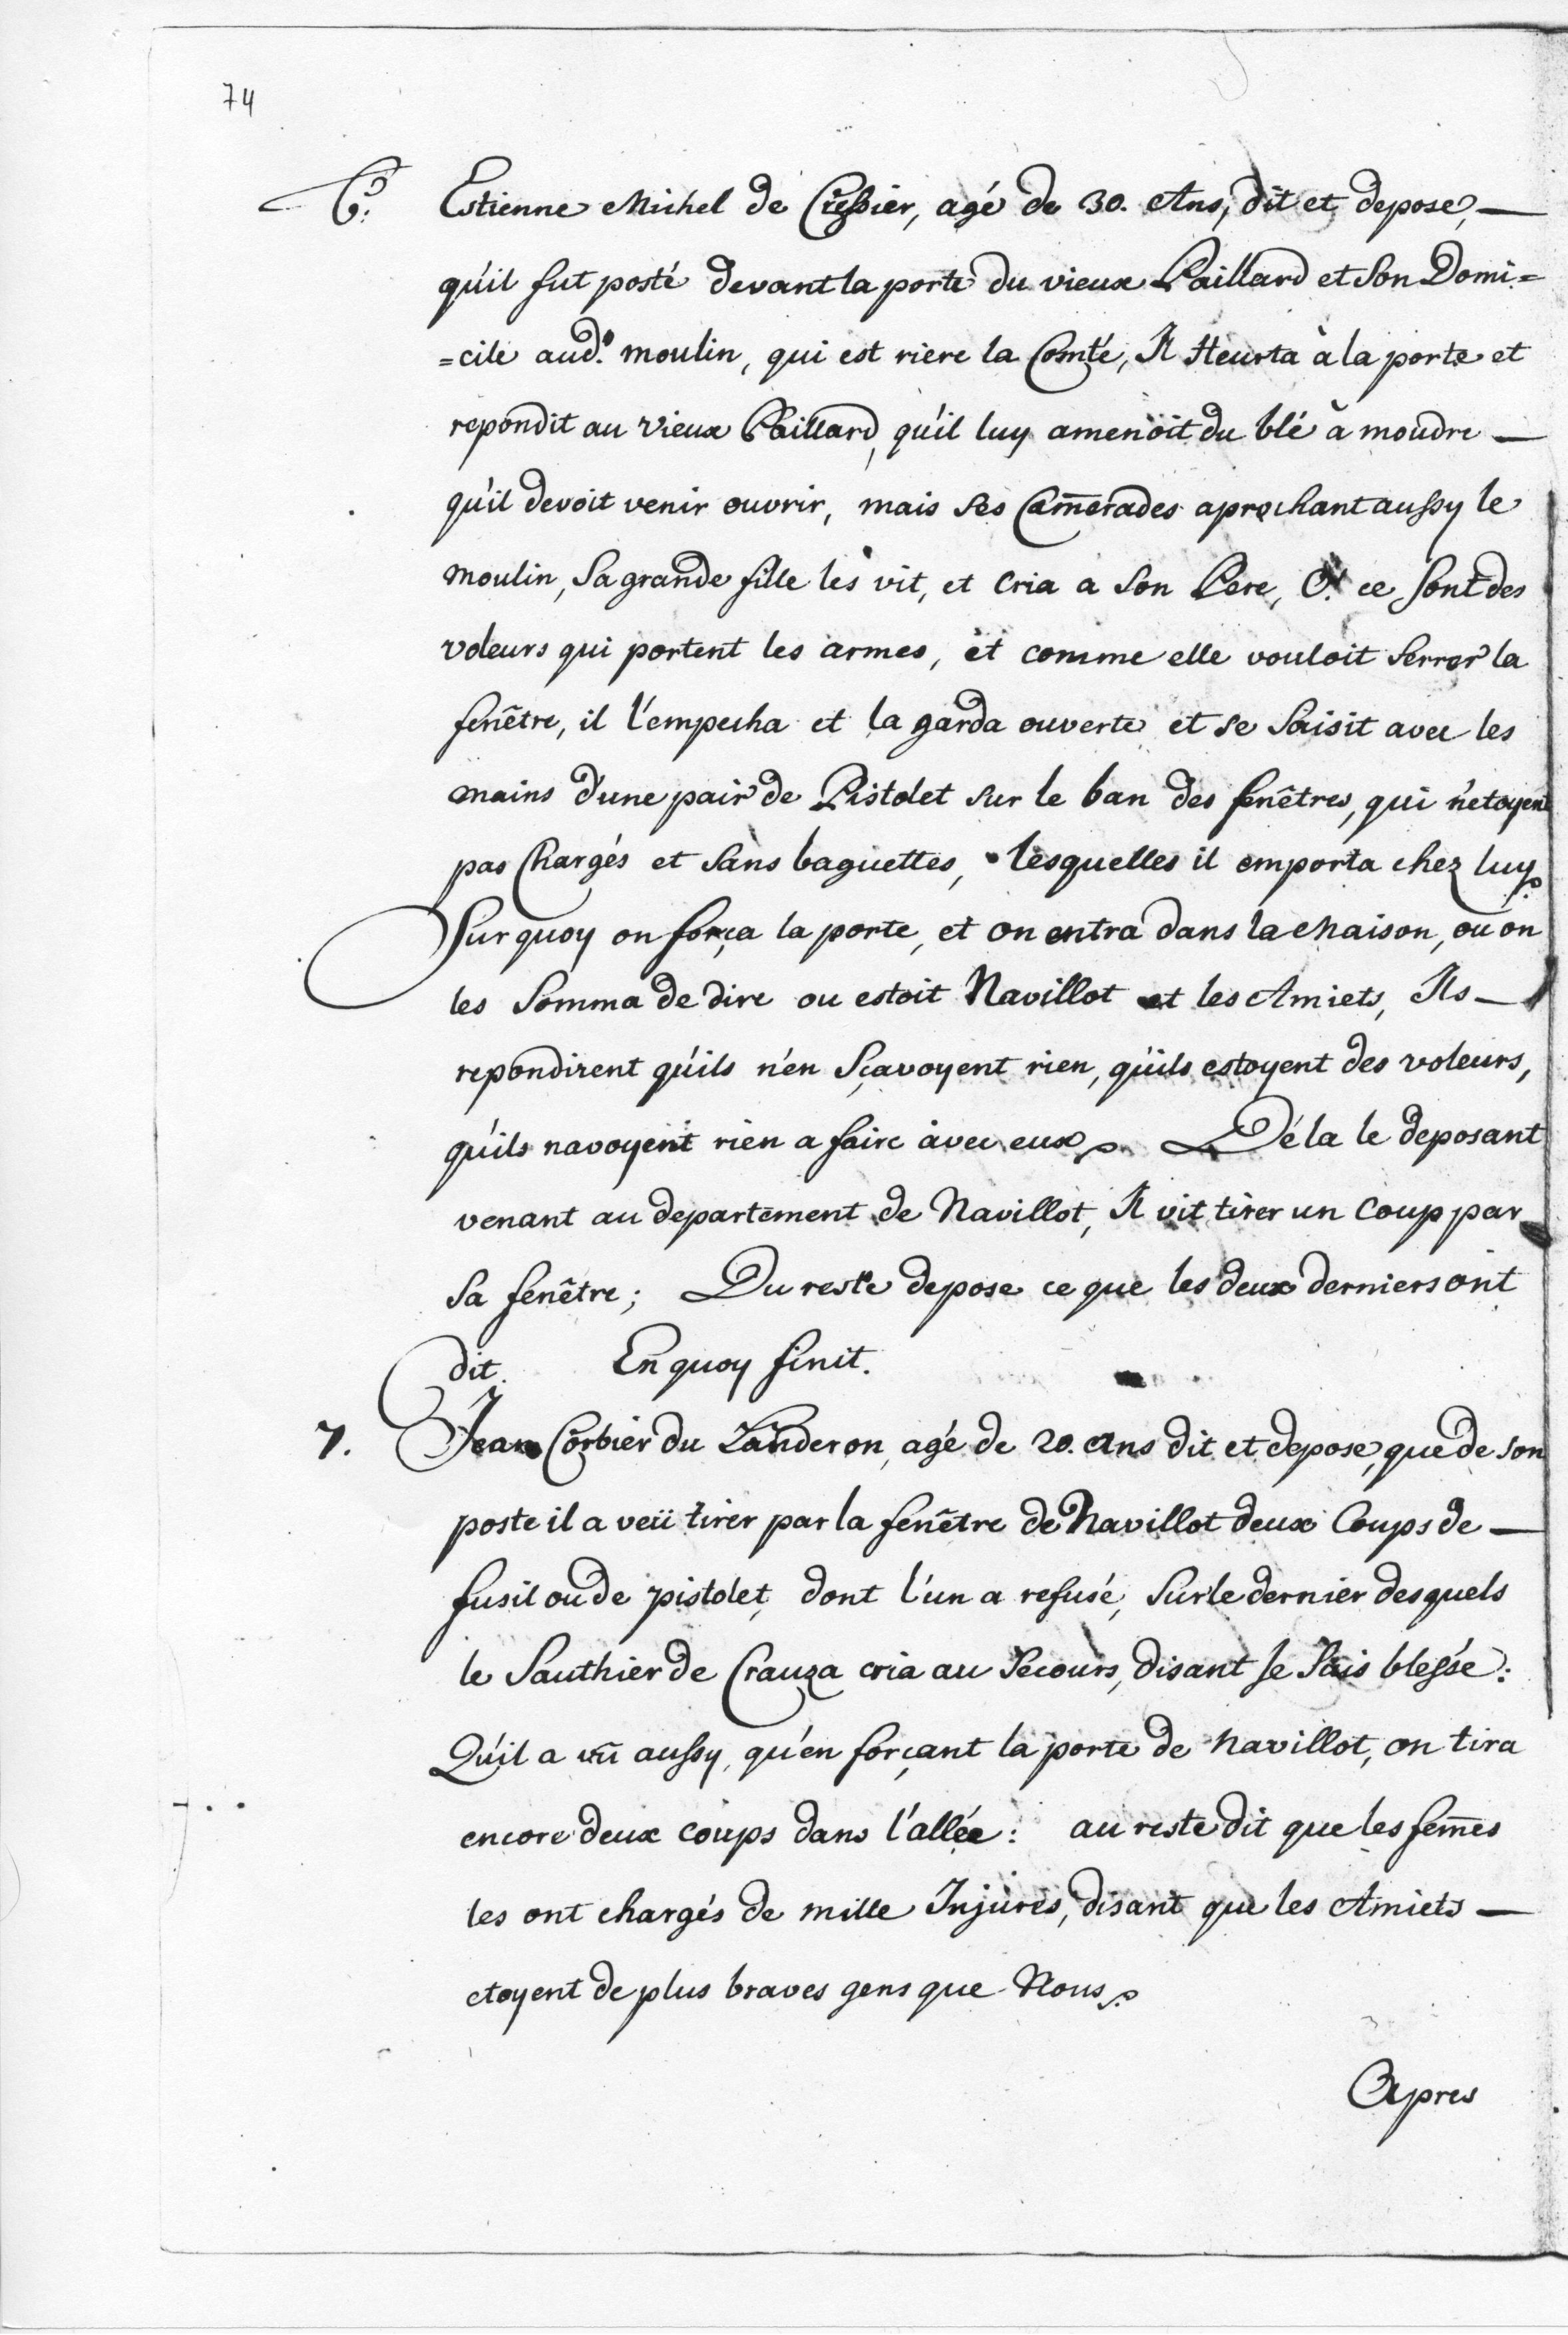 74
6. Estienne Michel de Cressier, agé de 30. Ans, dit et depose, —
qu'il fut posté devant la porte du vieux Paillard et Son Domi=
=cile aud.t moulin, qui est riere la Comté, Il Heurta à la porte et
repondit au vieux Paillard, qu'il luy amenoit du blé à moudre —
qu'il devoit venir ouvrir, mais ses Cam̄erades aprochant aussy le
moulin, Sa grande fille les vit, et Cria a Son Pere, O! ce sont des
voleurs qui portent les armes, et comme elle vouloit Serrer la
fenêtre, il l'empecha et la garda ouverte et se Saisit avec les
mains d'une pair de Pistolet sur le ban des fenêtres, qui n'etoyent
pas Chargés et Sans baguettes, lesquelles il emporta chez luy.
Sur quoy on força la porte, et on entra dans la Maison, ou on
les Somma de dire ou estoit Navillot et les Amiets, Ils —
repondirent qu'ils n'en Sçavoyent rien, qu'ils estoyent des voleurs,
qu'ils navoyent rien a faire avec eux. Déla le deposant
venant au departement de Navillot, Il vit tirer un Coup par
Sa fenêtre; Du reste depose ce que les deux derniers ont
dit. En quoy finit.
7. Jean Corbier du Landeron, agé de 20. Ans dit et depose, que de son
poste il a veü tirer par la fenêtre de Navillot deux Coups de —
fusil ou de pistolet, dont l'un a refusé, Sur le dernier desquels
le Sauthier de Crauza cria au Secours, disant Je Suis blessée:
Qu'il a vû aussy, qu'en forçant la porte de Navillot, on tira
encore deux coups dans l'allée: au reste dit que les fem̄es
les ont chargés de mille Injures, disant que les Amiets —
etoyent de plus braves gens que Nous.
Apres